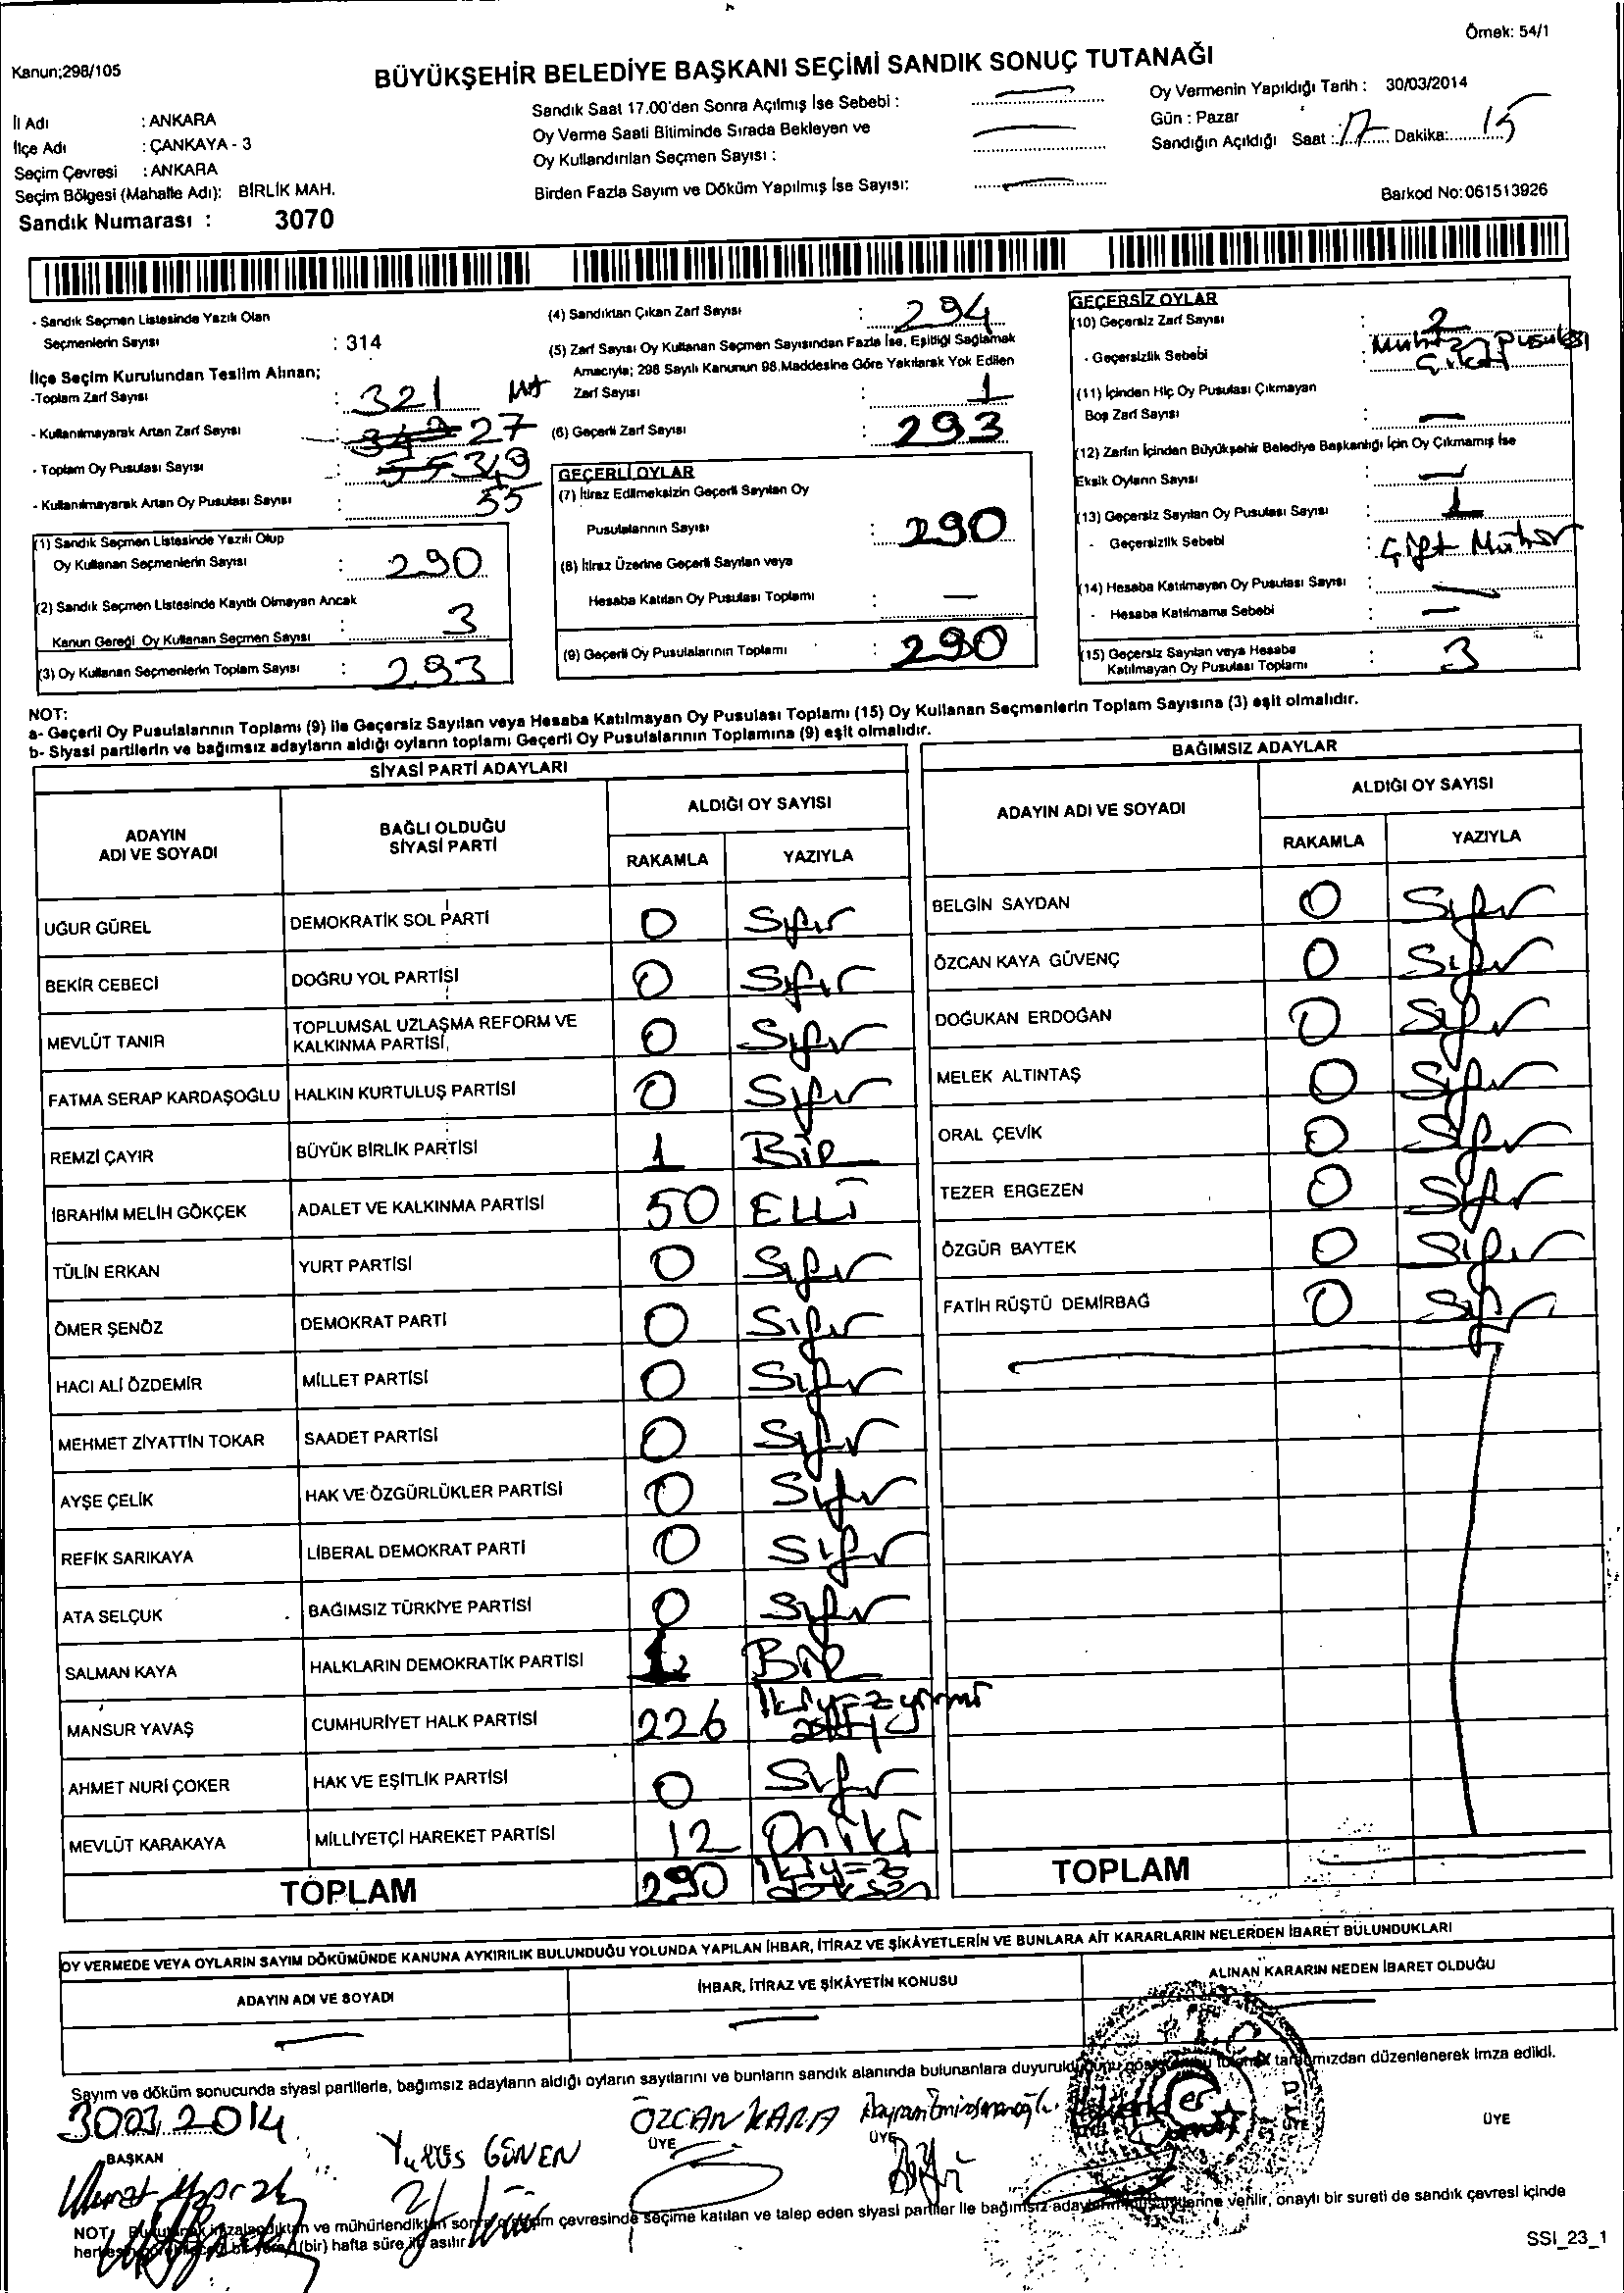 Örnek: 54/1
Kanun;298/105
BÜYÜKŞEHİR BELEDİYE BAŞKANI SEÇİMİ SANDIK SONUÇ TUTANAĞI
İl Adı : ANKARA
İlçe Adı : ÇANKAYA - 3
Seçim Çevresi : ANKARA
Seçim Bölgesi (Mahalle Adı): BİRLİK MAH.
Sandık Numarası : 3070
Sandık Saat 17.00'den Sonra Açılmış İse Sebebi :
Oy Verme Saati Bitiminde Sırada Bekleyen ve
Oy Kullandırılan Seçmen Sayısı :
Birden Fazla Sayım ve Döküm Yapılmış İse Sayısı:
Oy Vermenin Yapıldığı Tarih : 30/03/2014
Gün : Pazar
Sandığın Açıldığı Saat : 17 Dakika: 15
Barkod No:061513926
- Sandık Seçmen Listesinde Yazılı Olan
Seçmenlerin Sayısı : 314
İlçe Seçim Kurulundan Teslim Alınan;
-Toplam Zarf Sayısı : 321
- Kullanılmayarak Artan Zarf Sayısı 27
- Toplam Oy Pusulası Sayısı 349
- Kullanılmayarak Artan Oy Pusulası Sayısı : 55
(1) Sandık Seçmen Listesinde Yazılı Olup
Oy Kullanan Seçmenlerin Sayısı : 290
(2) Sandık Seçmen Listesinde Kayıtlı Olmayan Ancak
Kanun Gereği Oy Kullanan Seçmen Sayısı : 3
(3) Oy Kullanan Seçmenlerin Toplam Sayısı : 293
(4) Sandıktan Çıkan Zarf Sayısı : 294
(5) Zarf Sayısı Oy Kullanan Seçmen Sayısından Fazla İse, Eşitliği Sağlamak
Amacıyla; 298 Sayılı Kanunun 98.Maddesine Göre Yakılarak Yok Edilen
Zarf Sayısı : 1
(6) Geçerli Zarf Sayısı : 293
GEÇERLİ OYLAR
(7) İtiraz Edilmeksizin Geçerli Sayılan Oy
Pusulalarının Sayısı : 290
(8) İtiraz Üzerine Geçerli Sayılan veya
Hesaba Katılan Oy Pusulası Toplamı : —
(9) Geçerli Oy Pusulalarının Toplamı : 290
GEÇERSİZ OYLAR
(10) Geçersiz Zarf Sayısı : 2
- Geçersizlik Sebebi : Muhtar Pusulası
Çıktı
(11) İçinden Hiç Oy Pusulası Çıkmayan
Boş Zarf Sayısı : —
(12) Zarfın İçinden Büyükşehir Belediye Başkanlığı İçin Oy Çıkmamış İse
Eksik Oyların Sayısı : —
(13) Geçersiz Sayılan Oy Pusulası Sayısı : 1
- Geçersizlik Sebebi : Çift Mühür
(14) Hesaba Katılmayan Oy Pusulası Sayısı : —
- Hesaba Katılmama Sebebi : —
(15) Geçersiz Sayılan veya Hesaba
Katılmayan Oy Pusulası Toplamı : 3
NOT:
a- Geçerli Oy Pusulalarının Toplamı (9) ile Geçersiz Sayılan veya Hesaba Katılmayan Oy Pusulası Toplamı (15) Oy Kullanan Seçmenlerin Toplam Sayısına (3) eşit olmalıdır.
b- Siyasi partilerin ve bağımsız adayların aldığı oyların toplamı Geçerli Oy Pusulalarının Toplamına (9) eşit olmalıdır.
SİYASİ PARTİ ADAYLARI
ADAYIN ADI VE SOYADI BAĞLI OLDUĞU SİYASİ PARTİ ALDIĞI OY SAYISI
RAKAMLA YAZIYLA
UĞUR GÜREL DEMOKRATİK SOL PARTİ 0 Sıfır
BEKİR CEBECİ DOĞRU YOL PARTİSİ 0 Sıfır
MEVLÜT TANIR TOPLUMSAL UZLAŞMA REFORM VE KALKINMA PARTİSİ 0 Sıfır
FATMA SERAP KARDAŞOĞLU HALKIN KURTULUŞ PARTİSİ 0 Sıfır
REMZİ ÇAYIR BÜYÜK BİRLİK PARTİSİ 1 Bir
İBRAHİM MELİH GÖKÇEK ADALET VE KALKINMA PARTİSİ 50 ELLİ
TÜLİN ERKAN YURT PARTİSİ 0 Sıfır
ÖMER ŞENÖZ DEMOKRAT PARTİ 0 Sıfır
HACI ALİ ÖZDEMİR MİLLET PARTİSİ 0 Sıfır
MEHMET ZİYATTİN TOKAR SAADET PARTİSİ 0 Sıfır
AYŞE ÇELİK HAK VE ÖZGÜRLÜKLER PARTİSİ 0 Sıfır
REFİK SARIKAYA LİBERAL DEMOKRAT PARTİ 0 Sıfır
ATA SELÇUK BAĞIMSIZ TÜRKİYE PARTİSİ 0 Sıfır
SALMAN KAYA HALKLARIN DEMOKRATİK PARTİSİ 1 Bir
MANSUR YAVAŞ CUMHURİYET HALK PARTİSİ 226 İkiyüz yirmi altı
AHMET NURİ ÇOKER HAK VE EŞİTLİK PARTİSİ 0 Sıfır
MEVLÜT KARAKAYA MİLLİYETÇİ HAREKET PARTİSİ 12 Oniki
TOPLAM 290 İkiyüz doksan
BAĞIMSIZ ADAYLAR
ADAYIN ADI VE SOYADI ALDIĞI OY SAYISI
RAKAMLA YAZIYLA
BELGİN SAYDAN 0 Sıfır
ÖZCAN KAYA GÜVENÇ 0 Sıfır
DOĞUKAN ERDOĞAN 0 Sıfır
MELEK ALTINTAŞ 0 Sıfır
ORAL ÇEVİK 0 Sıfır
TEZER ERGEZEN 0 Sıfır
ÖZGÜR BAYTEK 0 Sıfır
FATİH RÜŞTÜ DEMİRBAĞ 0 Sıfır
TOPLAM
OY VERMEDE VEYA OYLARIN SAYIM DÖKÜMÜNDE KANUNA AYKIRILIK BULUNDUĞU YOLUNDA YAPILAN İHBAR, İTİRAZ VE ŞİKÂYETLERİN VE BUNLARA AİT KARARLARIN NELERDEN İBARET BULUNDUKLARI
ADAYIN ADI VE SOYADI İHBAR, İTİRAZ VE ŞİKÂYETİN KONUSU ALINAN KARARIN NEDEN İBARET OLDUĞU
Sayım ve döküm sonucunda siyasi partilerle, bağımsız adayların aldığı oyların sayılarını ve bunların sandık alanında bulunanlara duyurulduğunu tarafımızdan düzenlenerek imza edildi.
30 03 2014
BAŞKAN
Yunus GÜNEN
ÖZCAN KARA
ÜYE
ÜYE
ÜYE
ÜYE
T.C.
NOT: Bu tutanak imzalandıktan ve mühürlendikten sonra seçim çevresinde seçime katılan ve talep eden siyasi partiler ile bağımsız adayların verilir, onaylı bir sureti de sandık çevresi içinde
(bir) hafta süre ile asılır
SSI_23_1